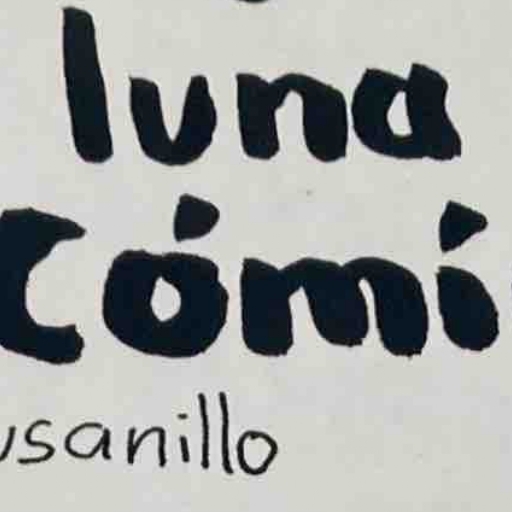 luna
Cómi
usanillo